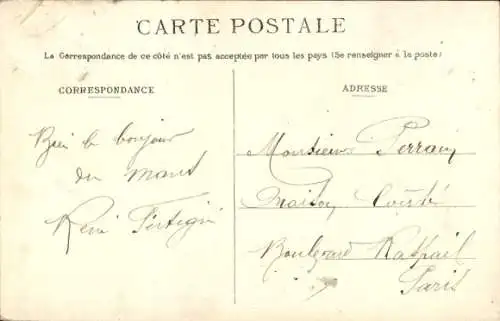 CARTE POSTALE
La Correspondance de ce côté n'est pas acceptée par tous les pays (Se renseigner à la poste)
CORRESPONDANCE
Bien le bonjour
du mans
René
ADRESSE
Monsieur Perrain
Maison
Boulevard Raspail
Paris